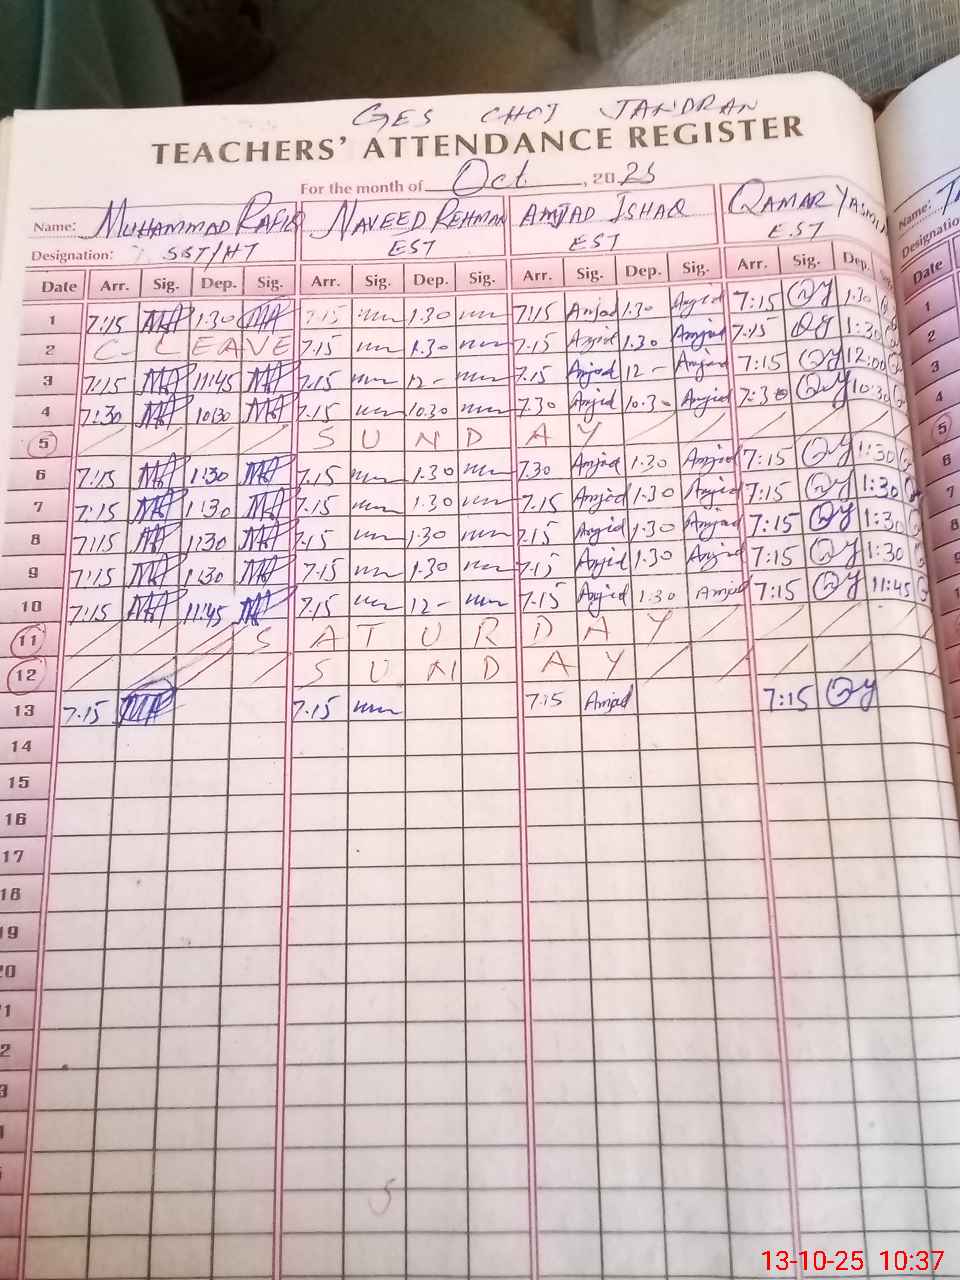 GES CHOT JANDRAN
TEACHERS' ATTENDANCE REGISTER
For the month of Oct, 2025
Name: MUHAMMAD RAFIQ NAVEED REHMAN AMJAD ISHAQ QAMAR YASMIN Name:
Designation: SST/HT EST EST EST
Date Arr. Sig. Dep. Sig. Arr. Sig. Dep. Sig. Arr. Sig. Dep. Sig. Arr. Sig. Dep. Date
1 7:15 1:30 7:15 1.30 7:15 Amjad 1.30 Amjad 7:15 QY 1:30 1
2 C- LEAVE 7.15 1.30 7.15 Amjid 1.30 Amjad 7:15 QY 1:30 2
3 7:15 11:45 7.15 12- 7.15 Amjad 12- Amjad 7:15 QY 12:00 3
4 7:30 10:30 7.15 10.30 7.30 Amjid 10.30 Amjid 7:30 QY 10:30 4
5 SUNDAY 5
6 7:15 1:30 7.15 1.30 7.30 Amjad 1.30 Amjad 7:15 QY 1:30 6
7 7:15 1:30 7.15 1.30 7.15 Amjid 1.30 Amjid 7:15 QY 1:30 7
8 7:15 1:30 7.15 1.30 7.15 Amjid 1.30 Amjad 7:15 QY 1:30 8
9 7:15 1:30 7.15 1.30 7.15 Amjid 1.30 Amjid 7:15 QY 1:30 9
10 7:15 11:45 7.15 12- 7.15 Amjid 1:30 Amjad 7:15 QY 11:45
11 SATURDAY
12 SUNDAY
13 7.15 7.15 7.15 Amjad 7:15 QY
14
15
16
17
18
19
20
13-10-25 10:37